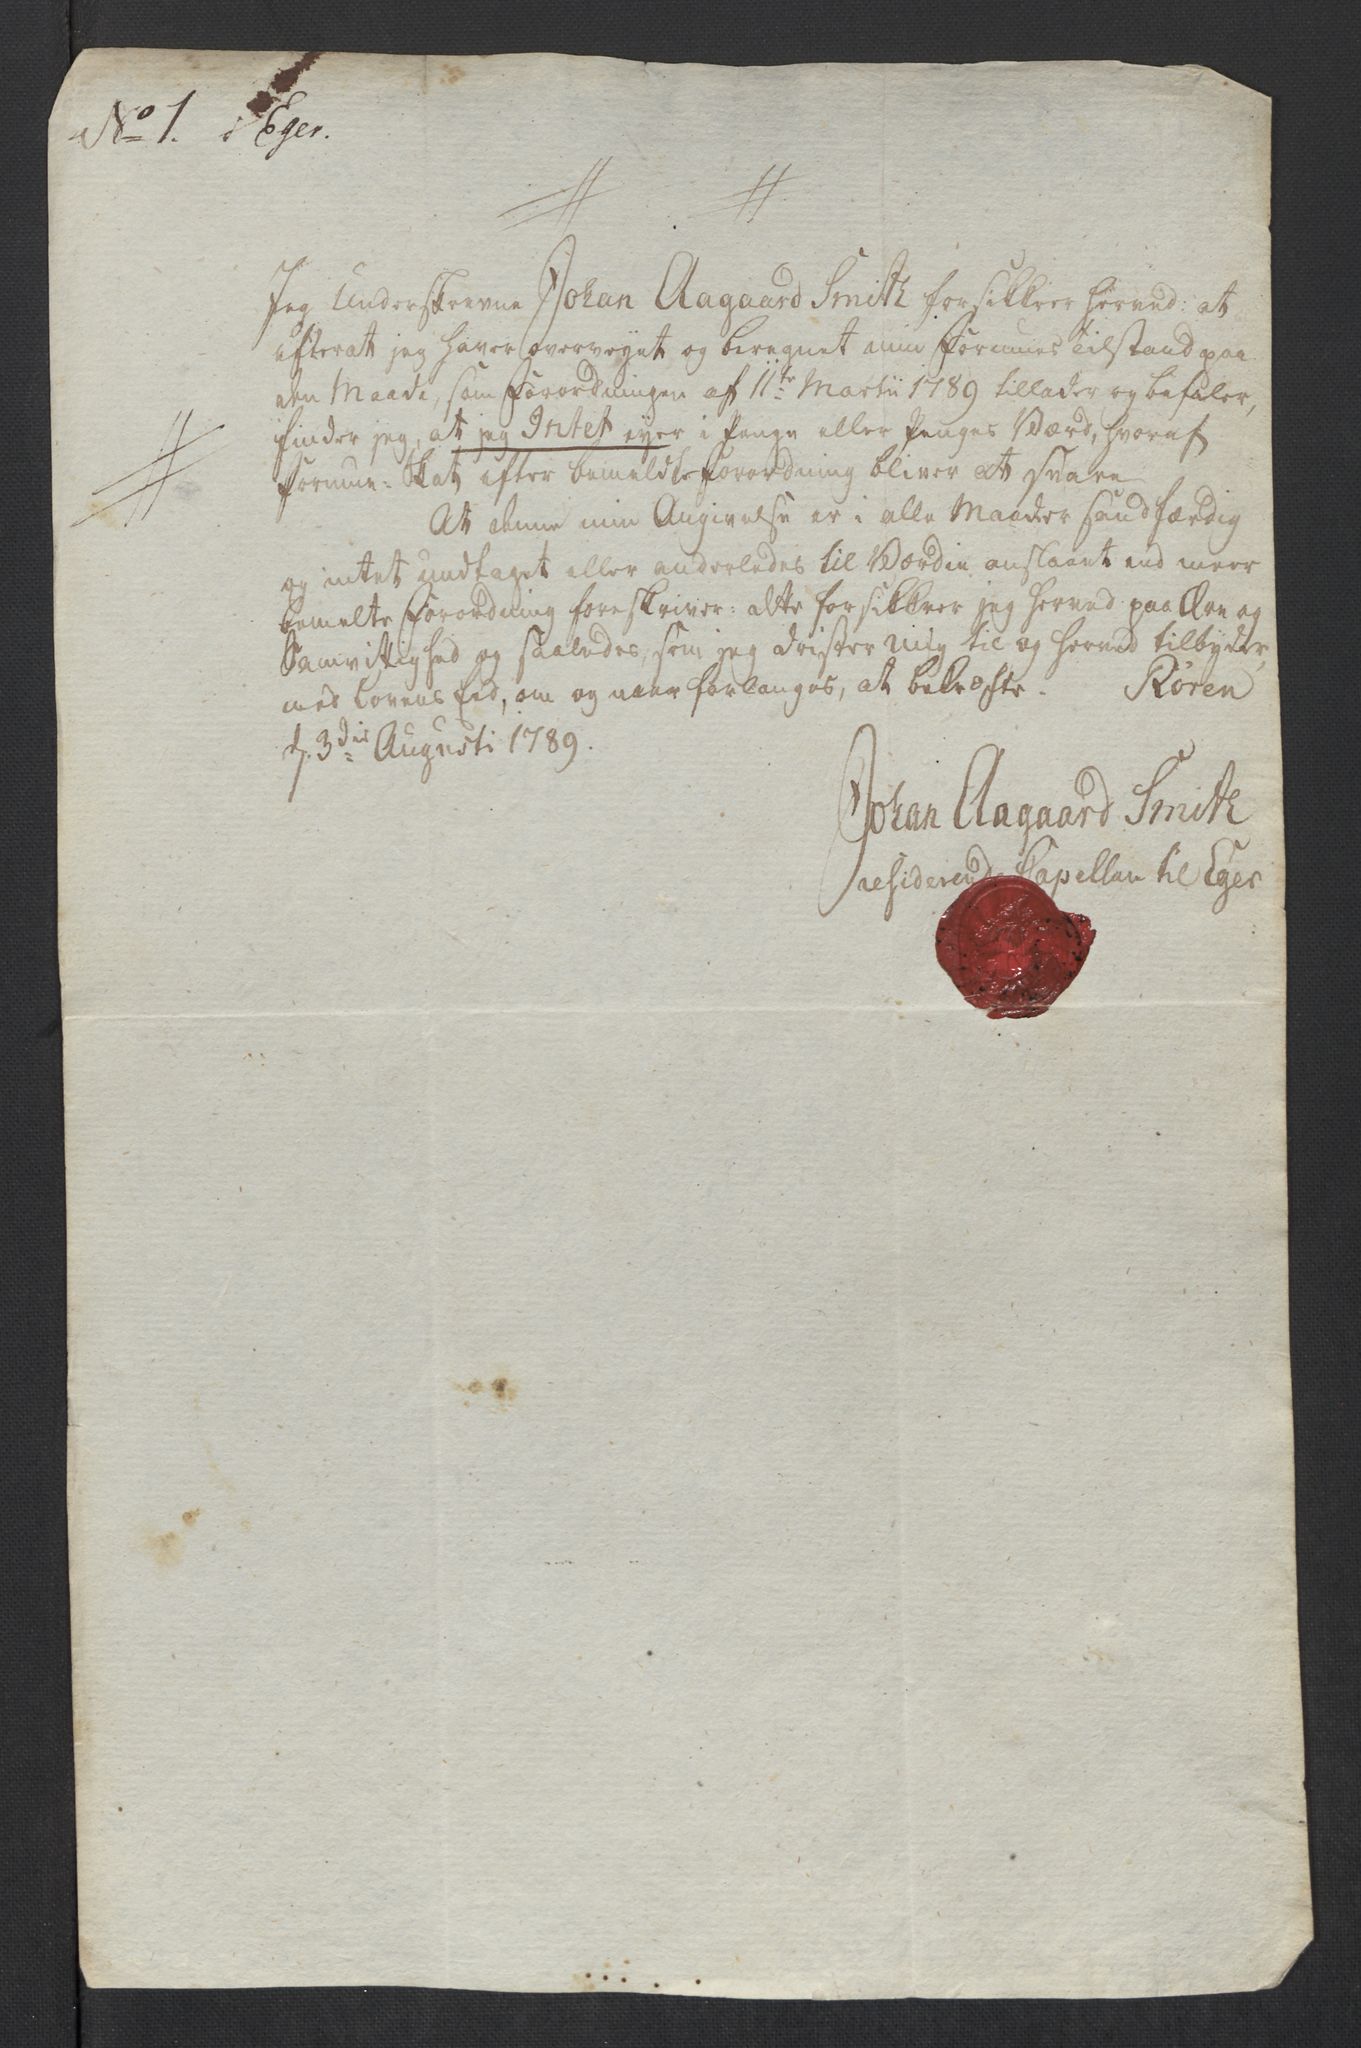 No 1. Eger.
Jeg Underskrevne Johan Aagaard Smith forsikkrer herved: at
efterat jeg haver overveyet og beregnet min Formues Tilstand paa
den Maade, som Forordningen af 11te Martii 1789 tillader og befaler,
finder jeg, at jeg Intet eyer i Penge eller Penges Værd, hvoraf
Formue-Skat efter bemeldte Forordning bliver at svare
At denne min Angivelse er i alle Maader sandfærdig
og intet undtaget eller anderledes til Værdie anslaaet end meer
bemelte Forordning foreskriver: dette forsikkrer jeg herved paa Ære og
Samvittighed og saaledes, som jeg drister mig til og herved tilbyder,
med Lovens Eed, om og naar forlanges, at bekræfte. Røren
d. 3die Augusti 1789.
Johan Aagaard Smith
residerende Capellan til Eger